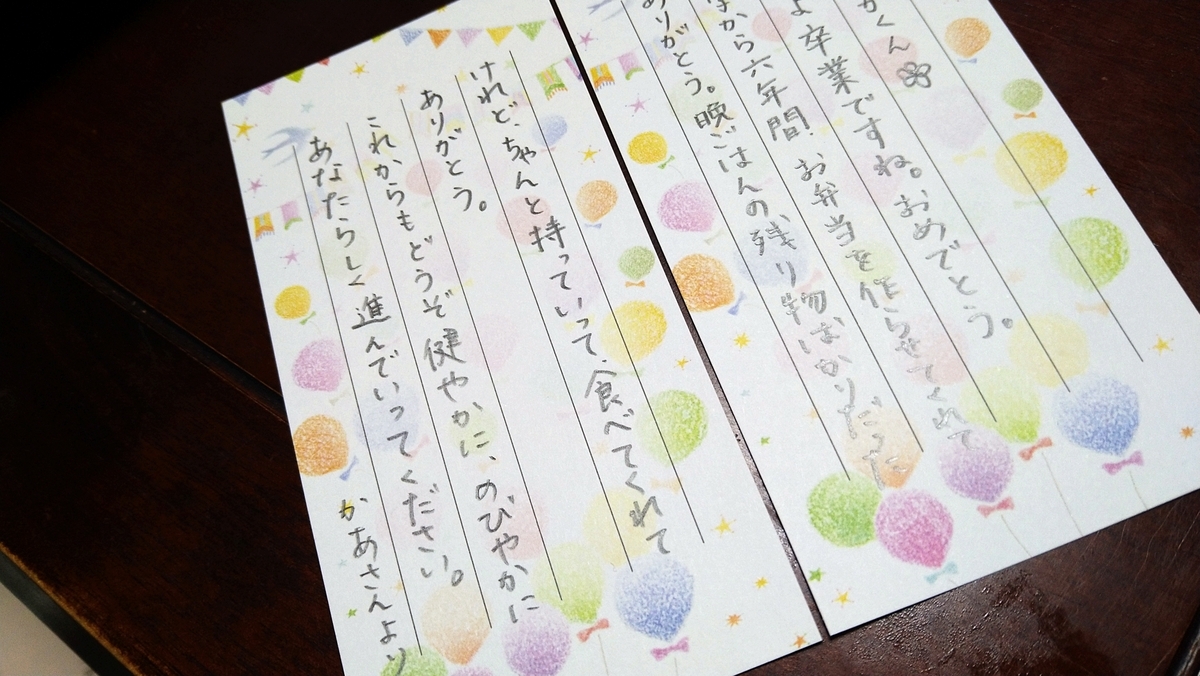 かくん
よ卒業ですね。おめでとう。
から六年間、お弁当を作らせてくれて
ありがとう。晩ごはんの残り物ばかりだった
けれど ちゃんと持っていって、食べてくれて
ありがとう。
これからもどうぞ健やかに、のびやかに
あなたらしく進んでいってください。
かあさんより